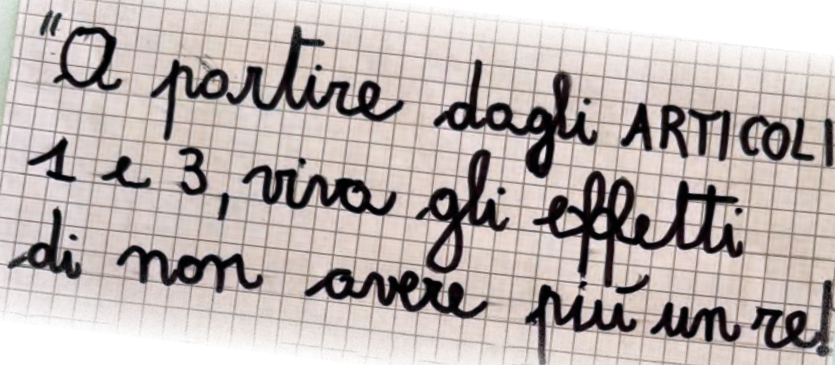 "A partire dagli ARTICOLI
1 e 3, viva gli effetti
di non avere più un re!